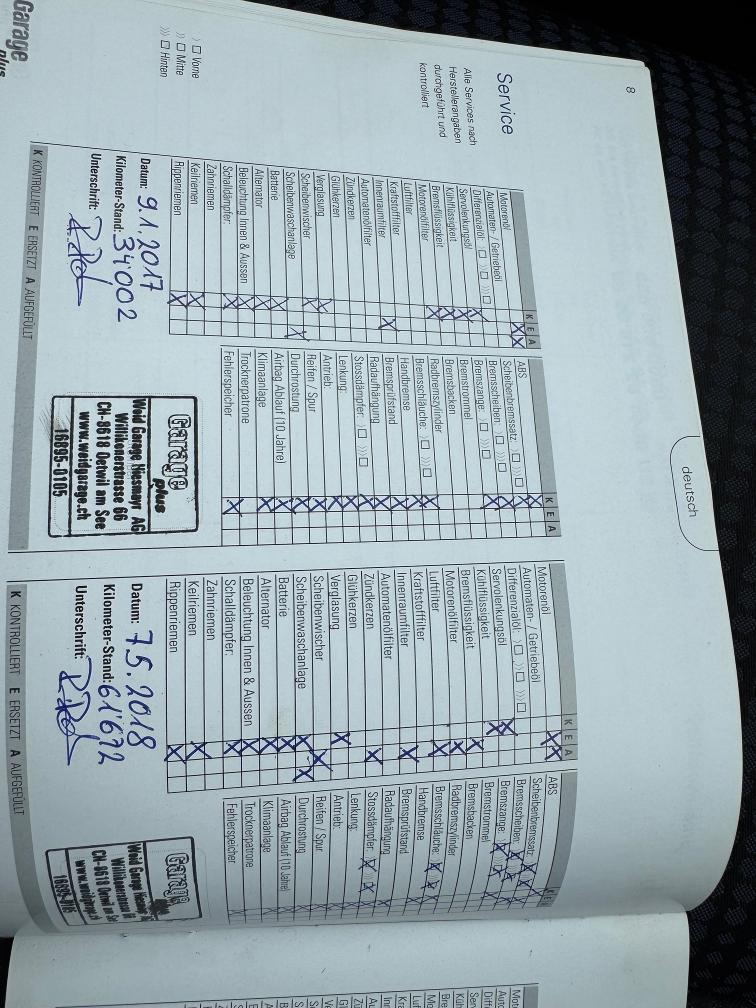 8
deutsch
Service
Alle Services nach
Herstellerangaben
durchgeführt und
kontrolliert
⟩ □ Vorne
⟩⟩ □ Mitte
⟩⟩⟩ □ Hinten
Garage
plus
K E A
Motorenöl
Automaten- / Getriebeöl
Differenzialöl: ⟩□ ⟩⟩□ ⟩⟩⟩□
Servolenkungsöl
Kühlflüssigkeit
Bremsflüssigkeit
Motorenölfilter
Luftfilter
Kraftstofffilter
Innenraumfilter
Automatenölfilter
Zündkerzen
Glühkerzen
Verglasung
Scheibenwischer
Scheibenwaschanlage
Batterie
Alternator
Beleuchtung Innen & Aussen
Schalldämpfer:
Zahnriemen
Keilriemen
Rippenriemen
Datum: 9.1.2017
Kilometer-Stand: 34'002
Unterschrift:
K KONTROLLIERT E ERSETZT A AUFGEFÜLLT
K E A
ABS
Scheibenbremssatz: ⟩□ ⟩⟩⟩□
Bremsscheiben: ⟩□ ⟩⟩⟩□
Bremszange: ⟩□ ⟩⟩⟩□
Bremstrommel
Bremsbacken
Radbremszylinder
Bremsschläuche: ⟩□ ⟩⟩⟩□
Handbremse
Bremsprüfstand
Radaufhängung
Stossdämpfer: ⟩□ ⟩⟩⟩□
Lenkung:
Antrieb:
Reifen / Spur
Durchrostung
Airbag Ablauf (10 Jahre)
Klimaanlage
Trocknerpatrone
Fehlerspeicher:
Garage
plus
Weid Garage Niesmayr AG
Willikonerstrasse 66
CH-8618 Oetwil am See
www.weidgarage.ch
16895-0105
K E A
Motorenöl
Automaten- / Getriebeöl
Differenzialöl: ⟩□ ⟩⟩□ ⟩⟩⟩□
Servolenkungsöl
Kühlflüssigkeit
Bremsflüssigkeit
Motorenölfilter
Luftfilter
Kraftstofffilter
Innenraumfilter
Automatenölfilter
Zündkerzen
Glühkerzen
Verglasung
Scheibenwischer
Scheibenwaschanlage
Batterie
Alternator
Beleuchtung Innen & Aussen
Schalldämpfer:
Zahnriemen
Keilriemen
Rippenriemen
Datum: 7.5.2018
Kilometer-Stand: 61'672
Unterschrift:
K KONTROLLIERT E ERSETZT A AUFGEFÜLLT
K E
ABS
Scheibenbremssatz:
Bremsscheiben:
Bremszange:
Bremstrommel
Bremsbacken
Radbremszylinder
Bremsschläuche:
Handbremse
Bremsprüfstand
Radaufhängung
Stossdämpfer:
Lenkung:
Antrieb:
Reifen / Spur
Durchrostung
Airbag Ablauf (10 Jahre)
Klimaanlage
Trocknerpatrone
Fehlerspeicher
Garage
Weid Garage
Willikonerstrasse
CH-8618 Oetwil am See
www.weidgarage.ch